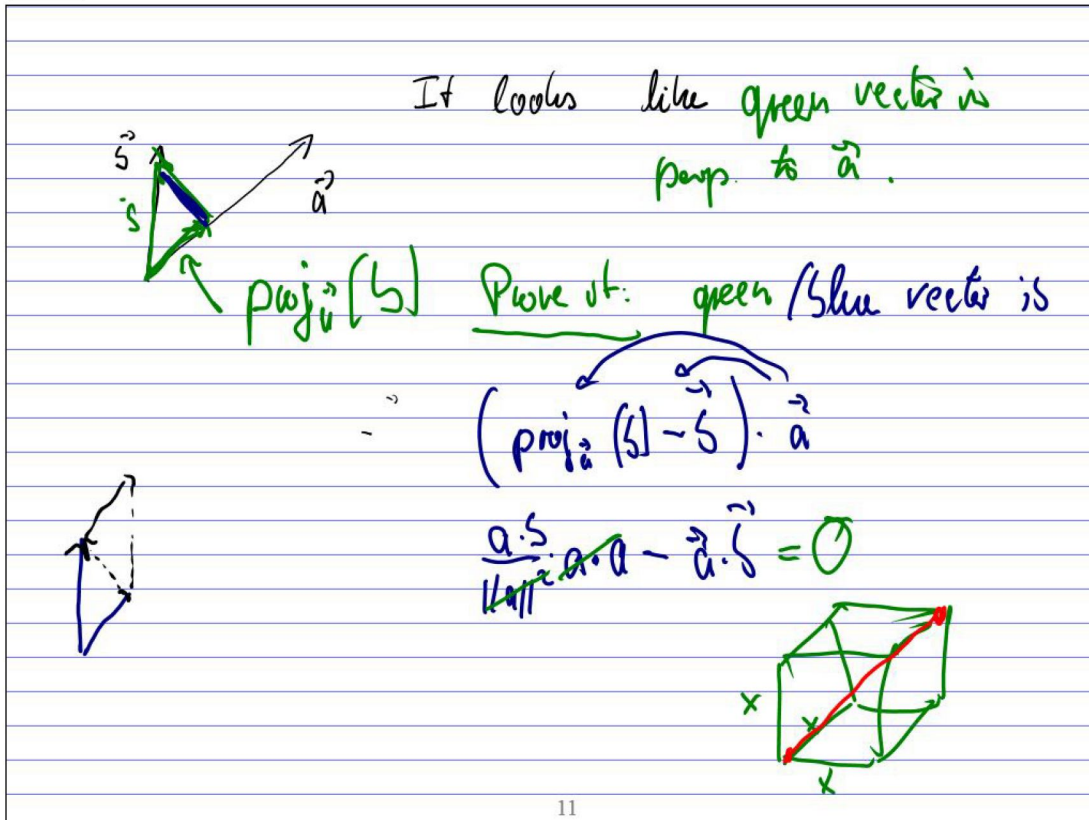 It looks like green vector is
perp. to a⃗.
b⃗
a⃗
b
proj_a⃗ [b] Prove it: green/blue vector is
(proj_a⃗ [b] - b⃗) · a⃗
a·b/||a||² a·a - a⃗·b⃗ = 0
x
x
x
11